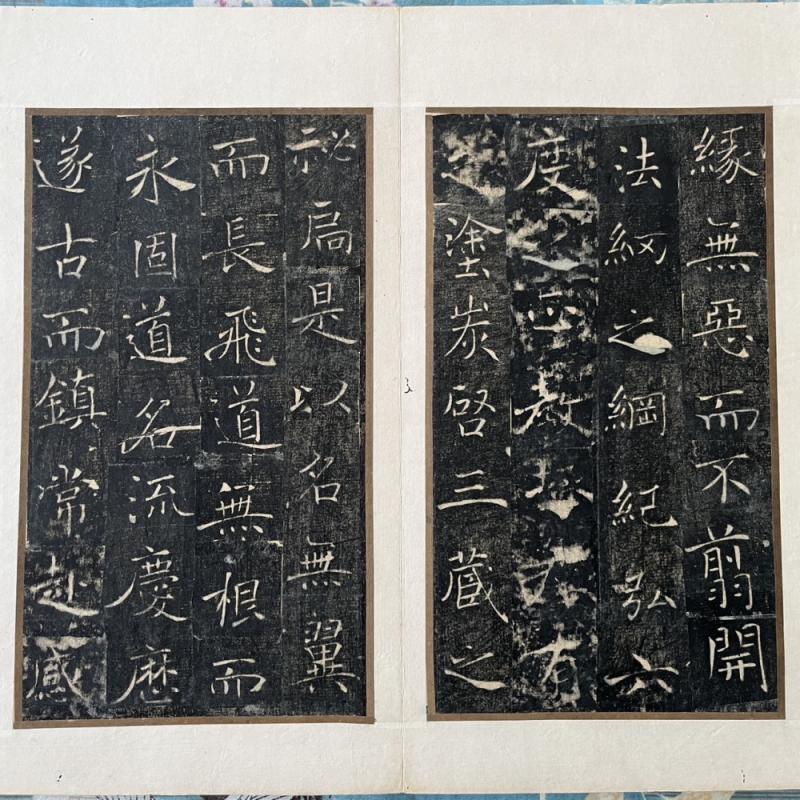 緣無惡而不翦開
法網之綱紀弘六
度之正教拯有
之塗炭啓三藏之
祕扃是以名無翼
而長飛道無根而
永固道名流慶歷
遂古而鎮常赴感